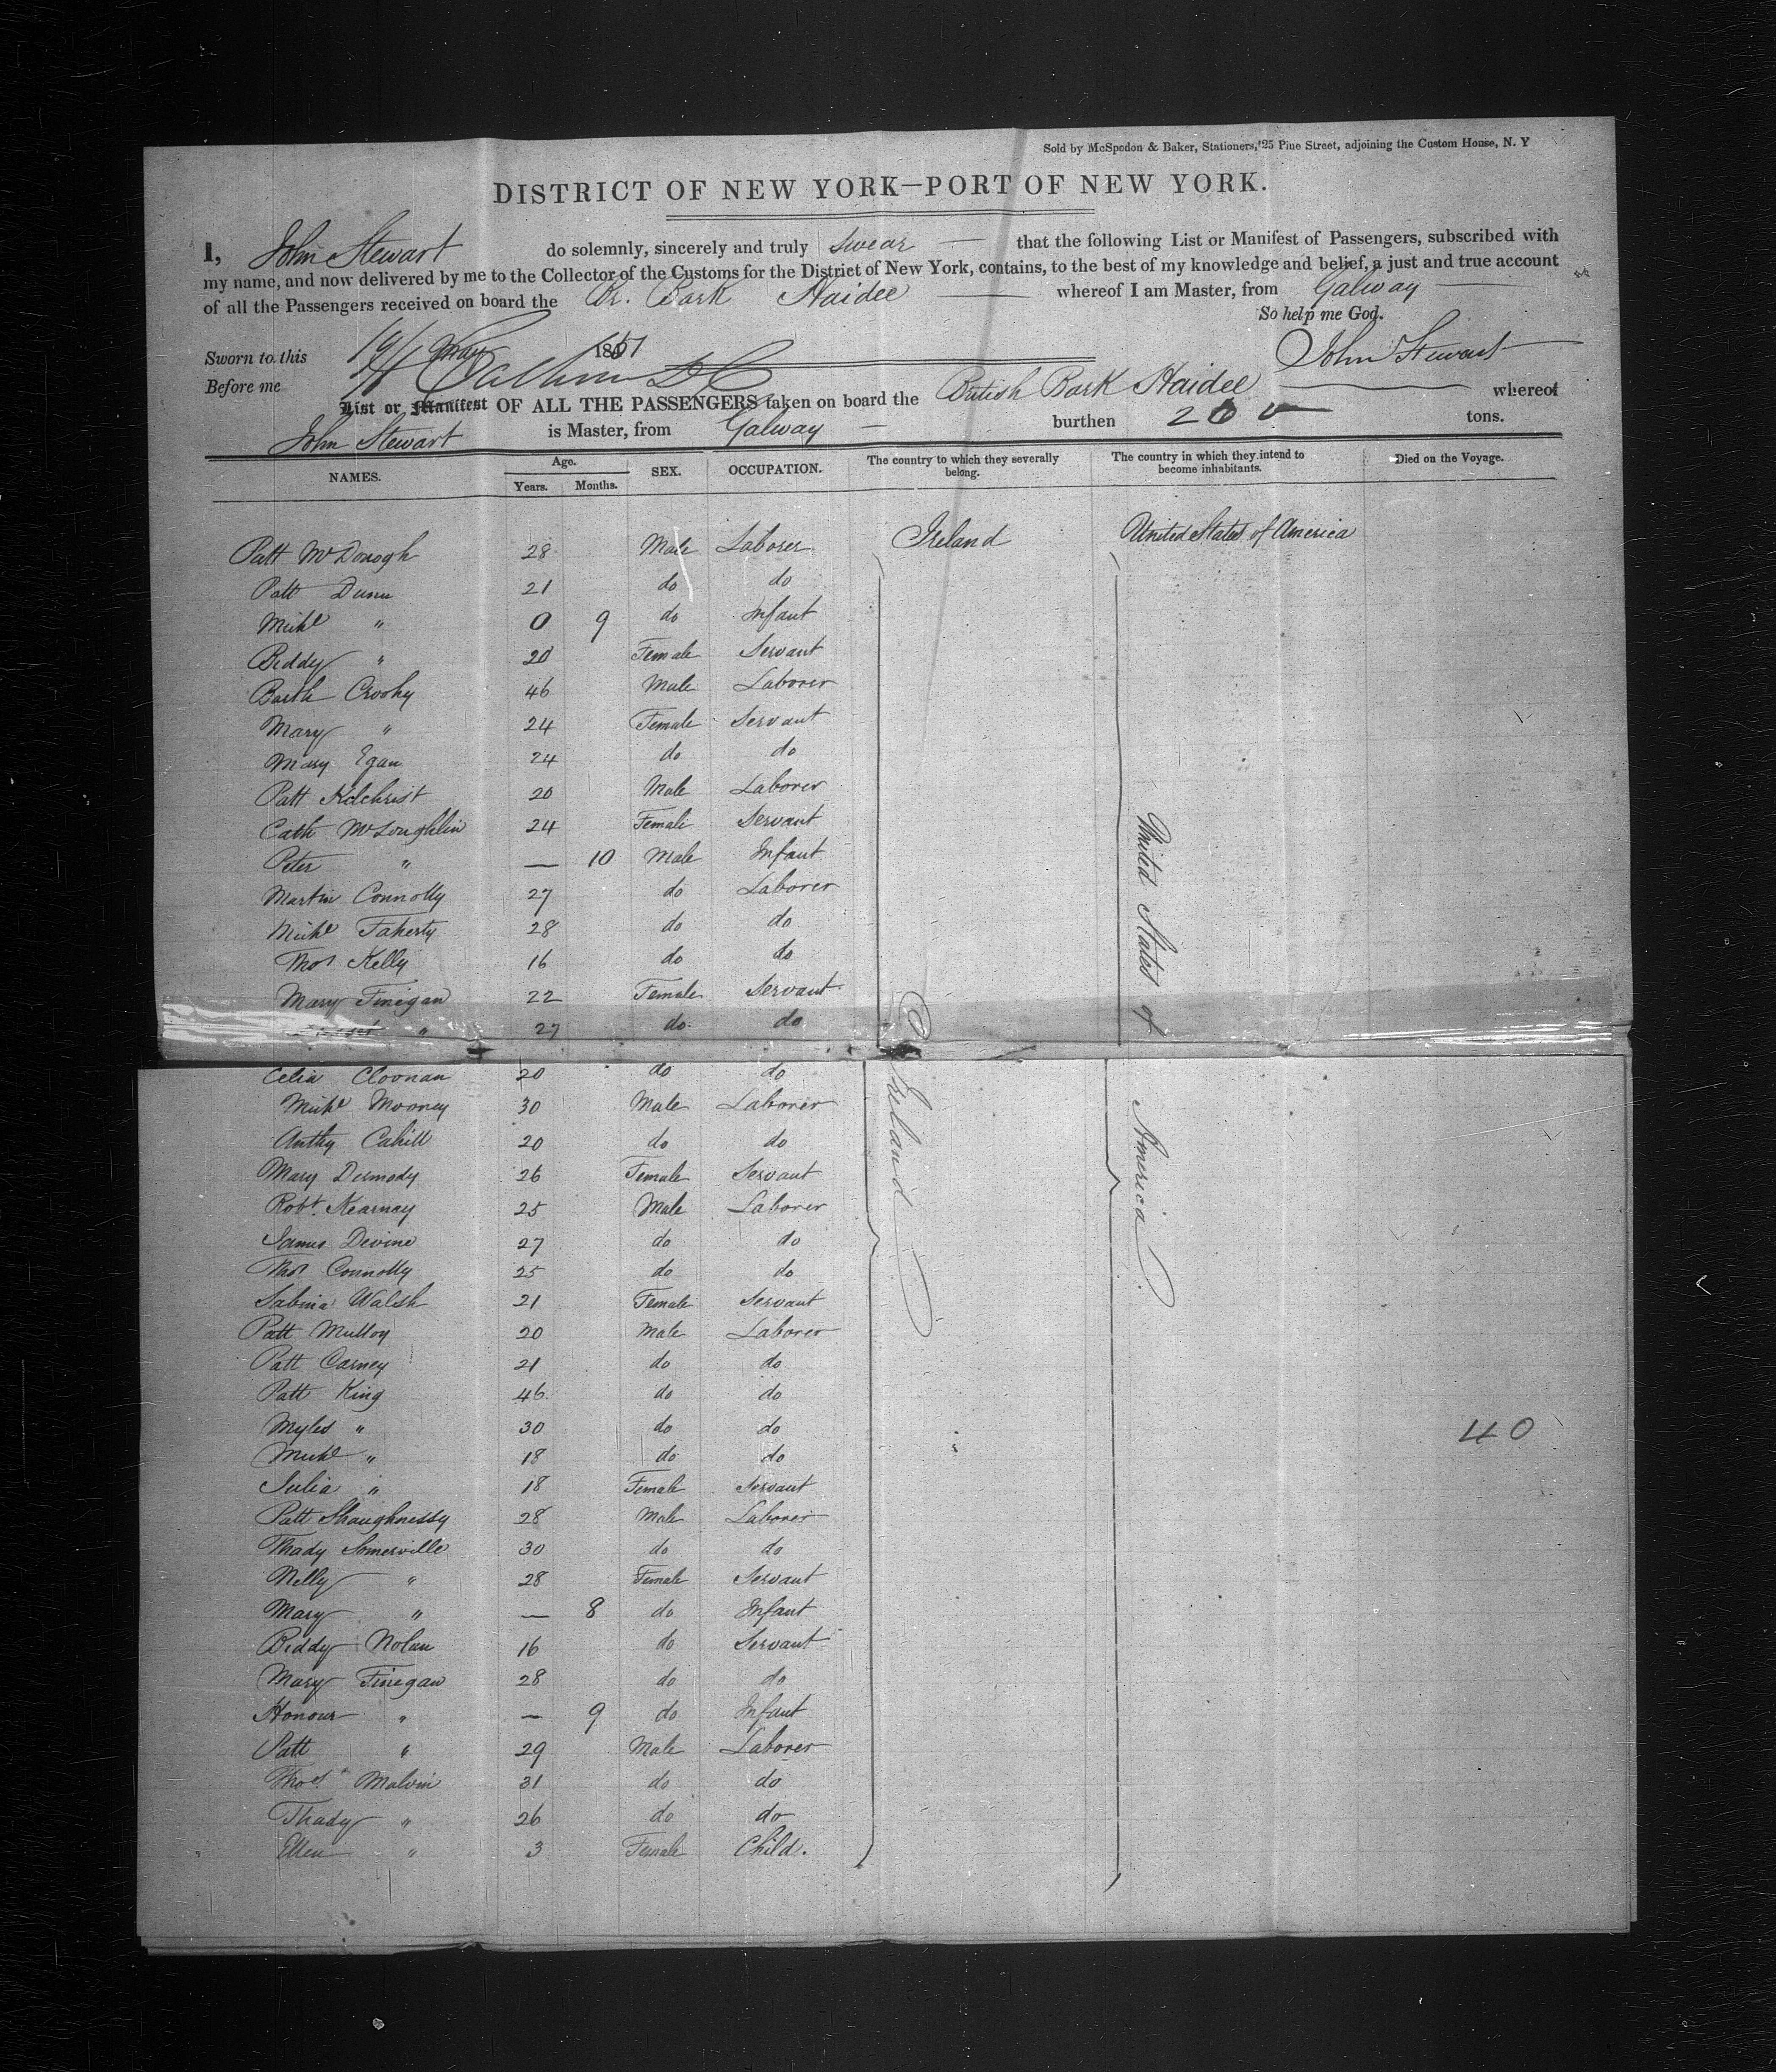 Sold by McSpedon & Baker, Stationers, 25 Pine Street, adjoining the Custom House, N. Y
DISTRICT OF NEW YORK—PORT OF NEW YORK.
I, John Stewart do solemnly, sincerely and truly swear — that the following List or Manifest of Passengers, subscribed with
my name, and now delivered by me to the Collector of the Customs for the District of New York, contains, to the best of my knowledge and belief, a just and true account
of all the Passengers received on board the Br. Bark Haidee — whereof I am Master, from Galway —
So help me God.
Sworn to this 19th May 1851 John Stewart
Before me
List or Manifest OF ALL THE PASSENGERS taken on board the British Bark Haidee — whereof
John Stewart is Master, from Galway — burthen tons.
NAMES. Age. Years. Months. SEX. OCCUPATION. The country to which they severally belong. The country in which they intend to become inhabitants. Died on the Voyage.
Patt McDonogh 28 Male Laborer Ireland United States of America
Patt Dunn 21 do do
Michl " 0 9 do Infant
Biddy " 20 Female Servant
Barth Croohy 46 Male Laborer
Mary " 24 Female Servant
Mary Egan 24 do do
Patt Kilchrist 20 Male Laborer
Cath McLoughlin 24 Female Servant
Peter " — 10 Male Infant
Martin Connolly 27 do Laborer
Michl Faherty 28 do do
Thos Kelly 16 do do
Mary Finegan 22 Female Servant
" 27 do do
Celia Cloonan 20 do do
Michl Mooney 30 Male Laborer
Anthy Cahill 20 do do
Mary Dermody 26 Female Servant
Robt. Kearnay 25 Male Laborer
James Devine 27 do do
Thos Connolly 25 do do
Sabina Walsh 21 Female Servant
Patt Mulloy 20 Male Laborer
Patt Carney 21 do do
Patt King 46 do do
Myles " 30 do do
Michl " 18 do do
Julia " 18 Female Servant
Patt Shaughnessy 28 Male Laborer
Thady Somerville 30 do do
Nelly " 28 Female Servant
Mary " — 8 do Infant
Biddy Nolan 16 do Servant
Mary Finegan 28 do do
Honour " — 9 do Infant
Patt " 29 Male Laborer
Thos. Malvin 31 do do
Thady " 26 do do
Ellen " 3 Female Child.
Ireland
United States of America
40